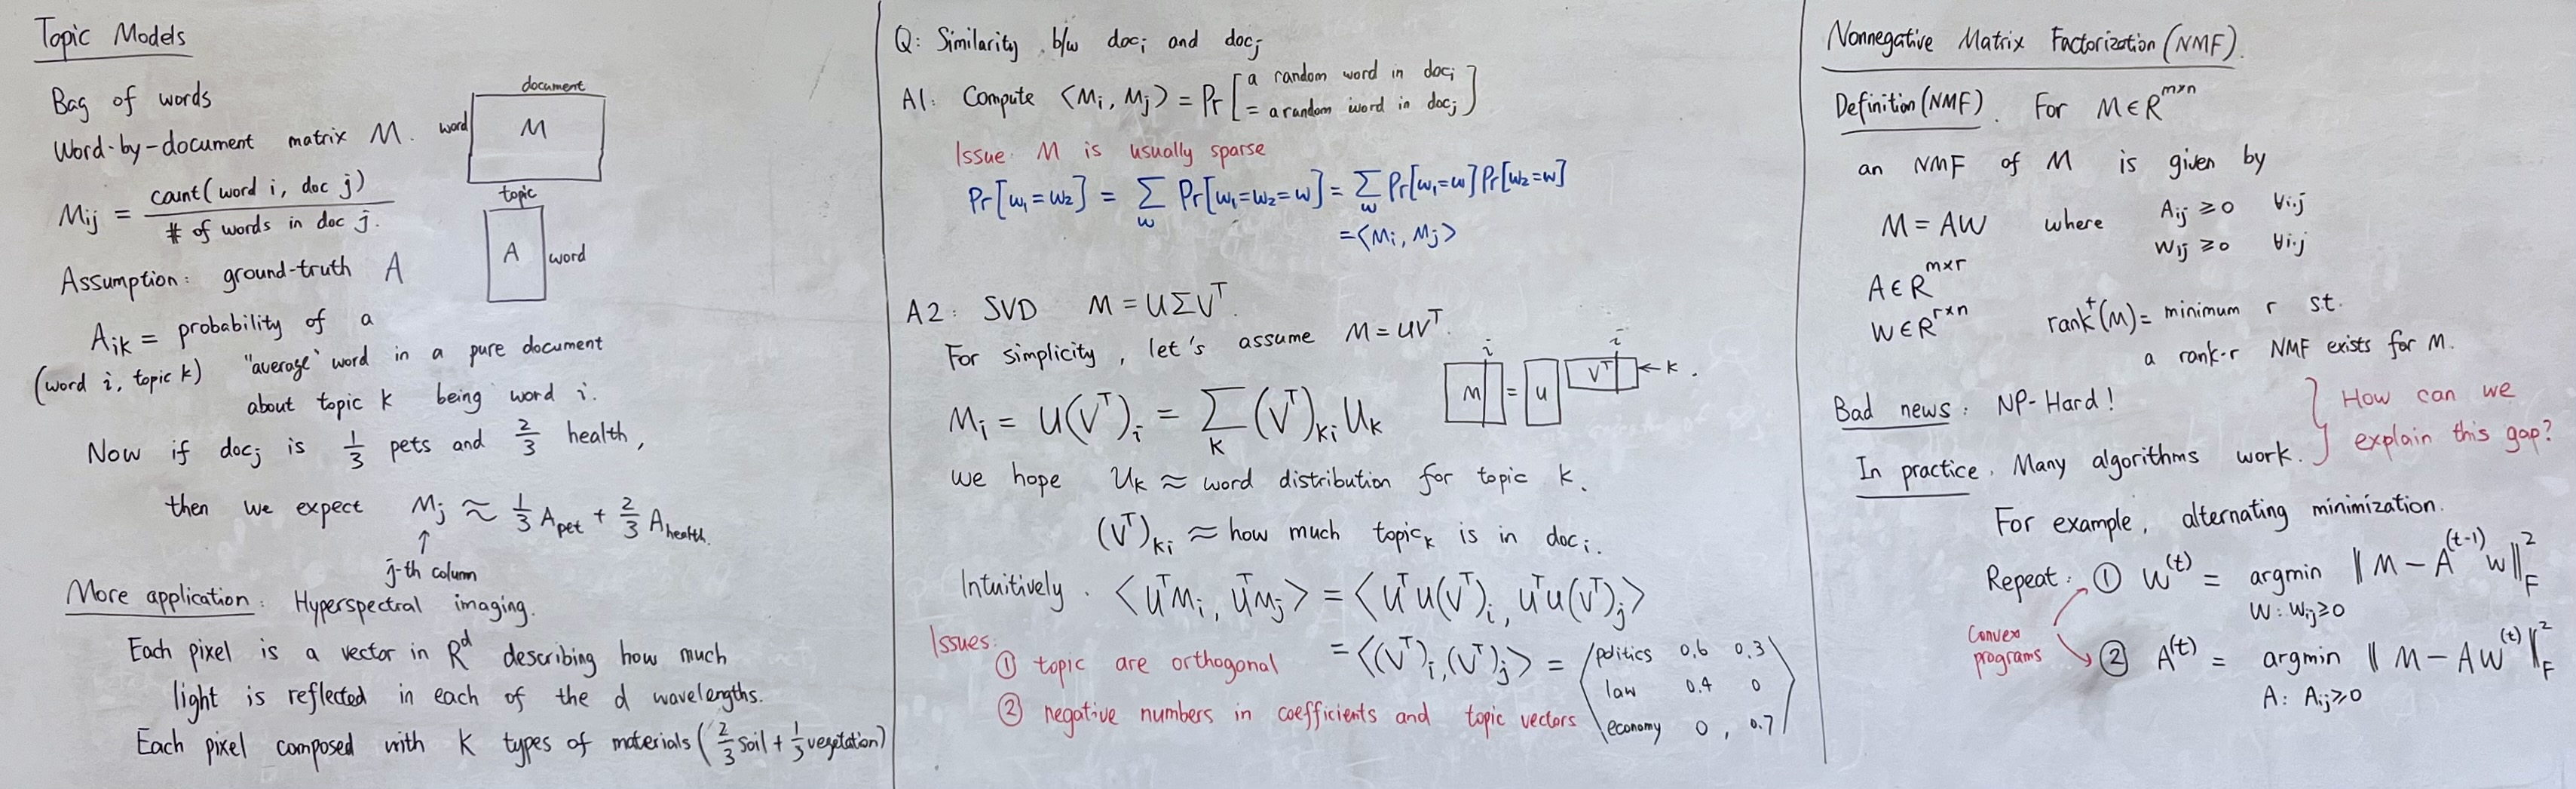 Topic Models
Bag of words
Word-by-document matrix M.
document
word
M
Mij = count(word i, doc j) / # of words in doc j.
topic
A
word
Assumption: ground-truth A
Aik = probability of a
(word i, topic k) "average" word in a pure document
about topic k being word i.
Now if docj is 1/3 pets and 2/3 health,
then we expect Mj ≈ 1/3 Apet + 2/3 Ahealth.
↑
j-th column
More application: Hyperspectral imaging.
Each pixel is a vector in R^d describing how much
light is reflected in each of the d wavelengths.
Each pixel composed with K types of materials (2/3 soil + 1/3 vegetation)
Q: Similarity b/w doci and docj
A1: Compute ⟨Mi, Mj⟩ = Pr[a random word in doci
= a random word in docj]
Issue: M is usually sparse
Pr[w1=w2] = Σ_w Pr[w1=w2=w] = Σ_w Pr[w1=w]Pr[w2=w]
=⟨Mi, Mj⟩
A2: SVD M = UΣV^T.
For simplicity, let's assume M = UV^T.
i
i
M = U V^T ← k.
Mi = U(V^T)i = Σ_k (V^T)ki Uk
we hope Uk ≈ word distribution for topic k.
(V^T)ki ≈ how much topick is in doci.
Intuitively. ⟨U^T Mi, U^T Mj⟩ = ⟨U^T U(V^T)i, U^T U(V^T)j⟩
= ⟨(V^T)i, (V^T)j⟩ = ⟨
politics 0.6 0.3
law 0.4 0
economy 0, 0.7
⟩
Issues:
① topic are orthogonal
② negative numbers in coefficients and topic vectors
Nonnegative Matrix Factorization (NMF).
Definition (NMF). For M ∈ R^{m×n}
an NMF of M is given by
M = AW where Aij ≥ 0 ∀i,j
Wij ≥ 0 ∀i,j
A ∈ R^{m×r}
W ∈ R^{r×n}
rank^+(M) = minimum r s.t.
a rank-r NMF exists for M.
Bad news: NP-Hard!
In practice. Many algorithms work.
How can we
explain this gap?
For example, alternating minimization.
Repeat: ① W^(t) = argmin ‖M − A^(t-1) W‖_F^2
W: Wij≥0
Convex
programs
② A^(t) = argmin ‖M − AW^(t)‖_F^2
A: Aij≥0